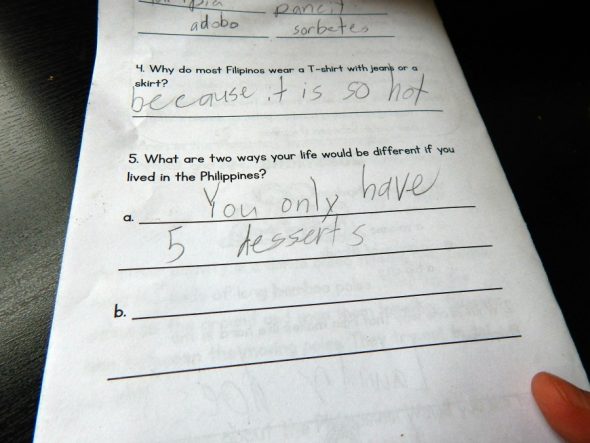 pancit
adobo sorbetes
4. Why do most Filipinos wear a T-shirt with jeans or a
skirt?
because it is so hot
5. What are two ways your life would be different if you
lived in the Philippines?
a. You only have
5 desserts
b.